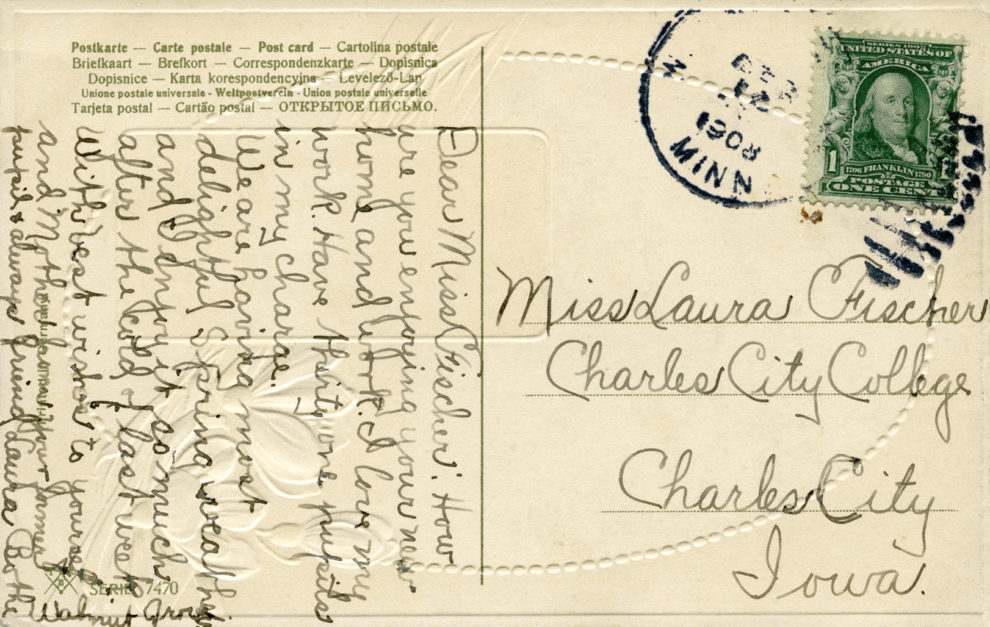 Postkarte — Carte postale — Post card — Cartolina postale
Briefkaart — Brefkort — Correspondenzkarte — Dopisnica
Dopisnice — Karta korespondencyjna — Levelező-Lap
Unione postale universale - Weltpostverein - Union postale universelle
Tarjeta postal — Cartão postal — ОТКРЫТОЕ ПИСЬМО.
1908
MINN
SERIES 1902
UNITED STATES OF
AMERICA
1706 FRANKLIN 1790
POSTAGE
1
ONE CENT
Miss Laura Fischer
Charles City College
Charles City
Iowa.
Dear Miss Fischer: How
are you enjoying your new
home and work. I love my
work. Have thirty one pupils
in my charge.
We are having most
delightful spring weather
and I enjoy it so much
after the cold of last week
With best wishes to yourself
and Mother, your former
pupil & always friend Laura
Walnut Grove
SERIE 7470